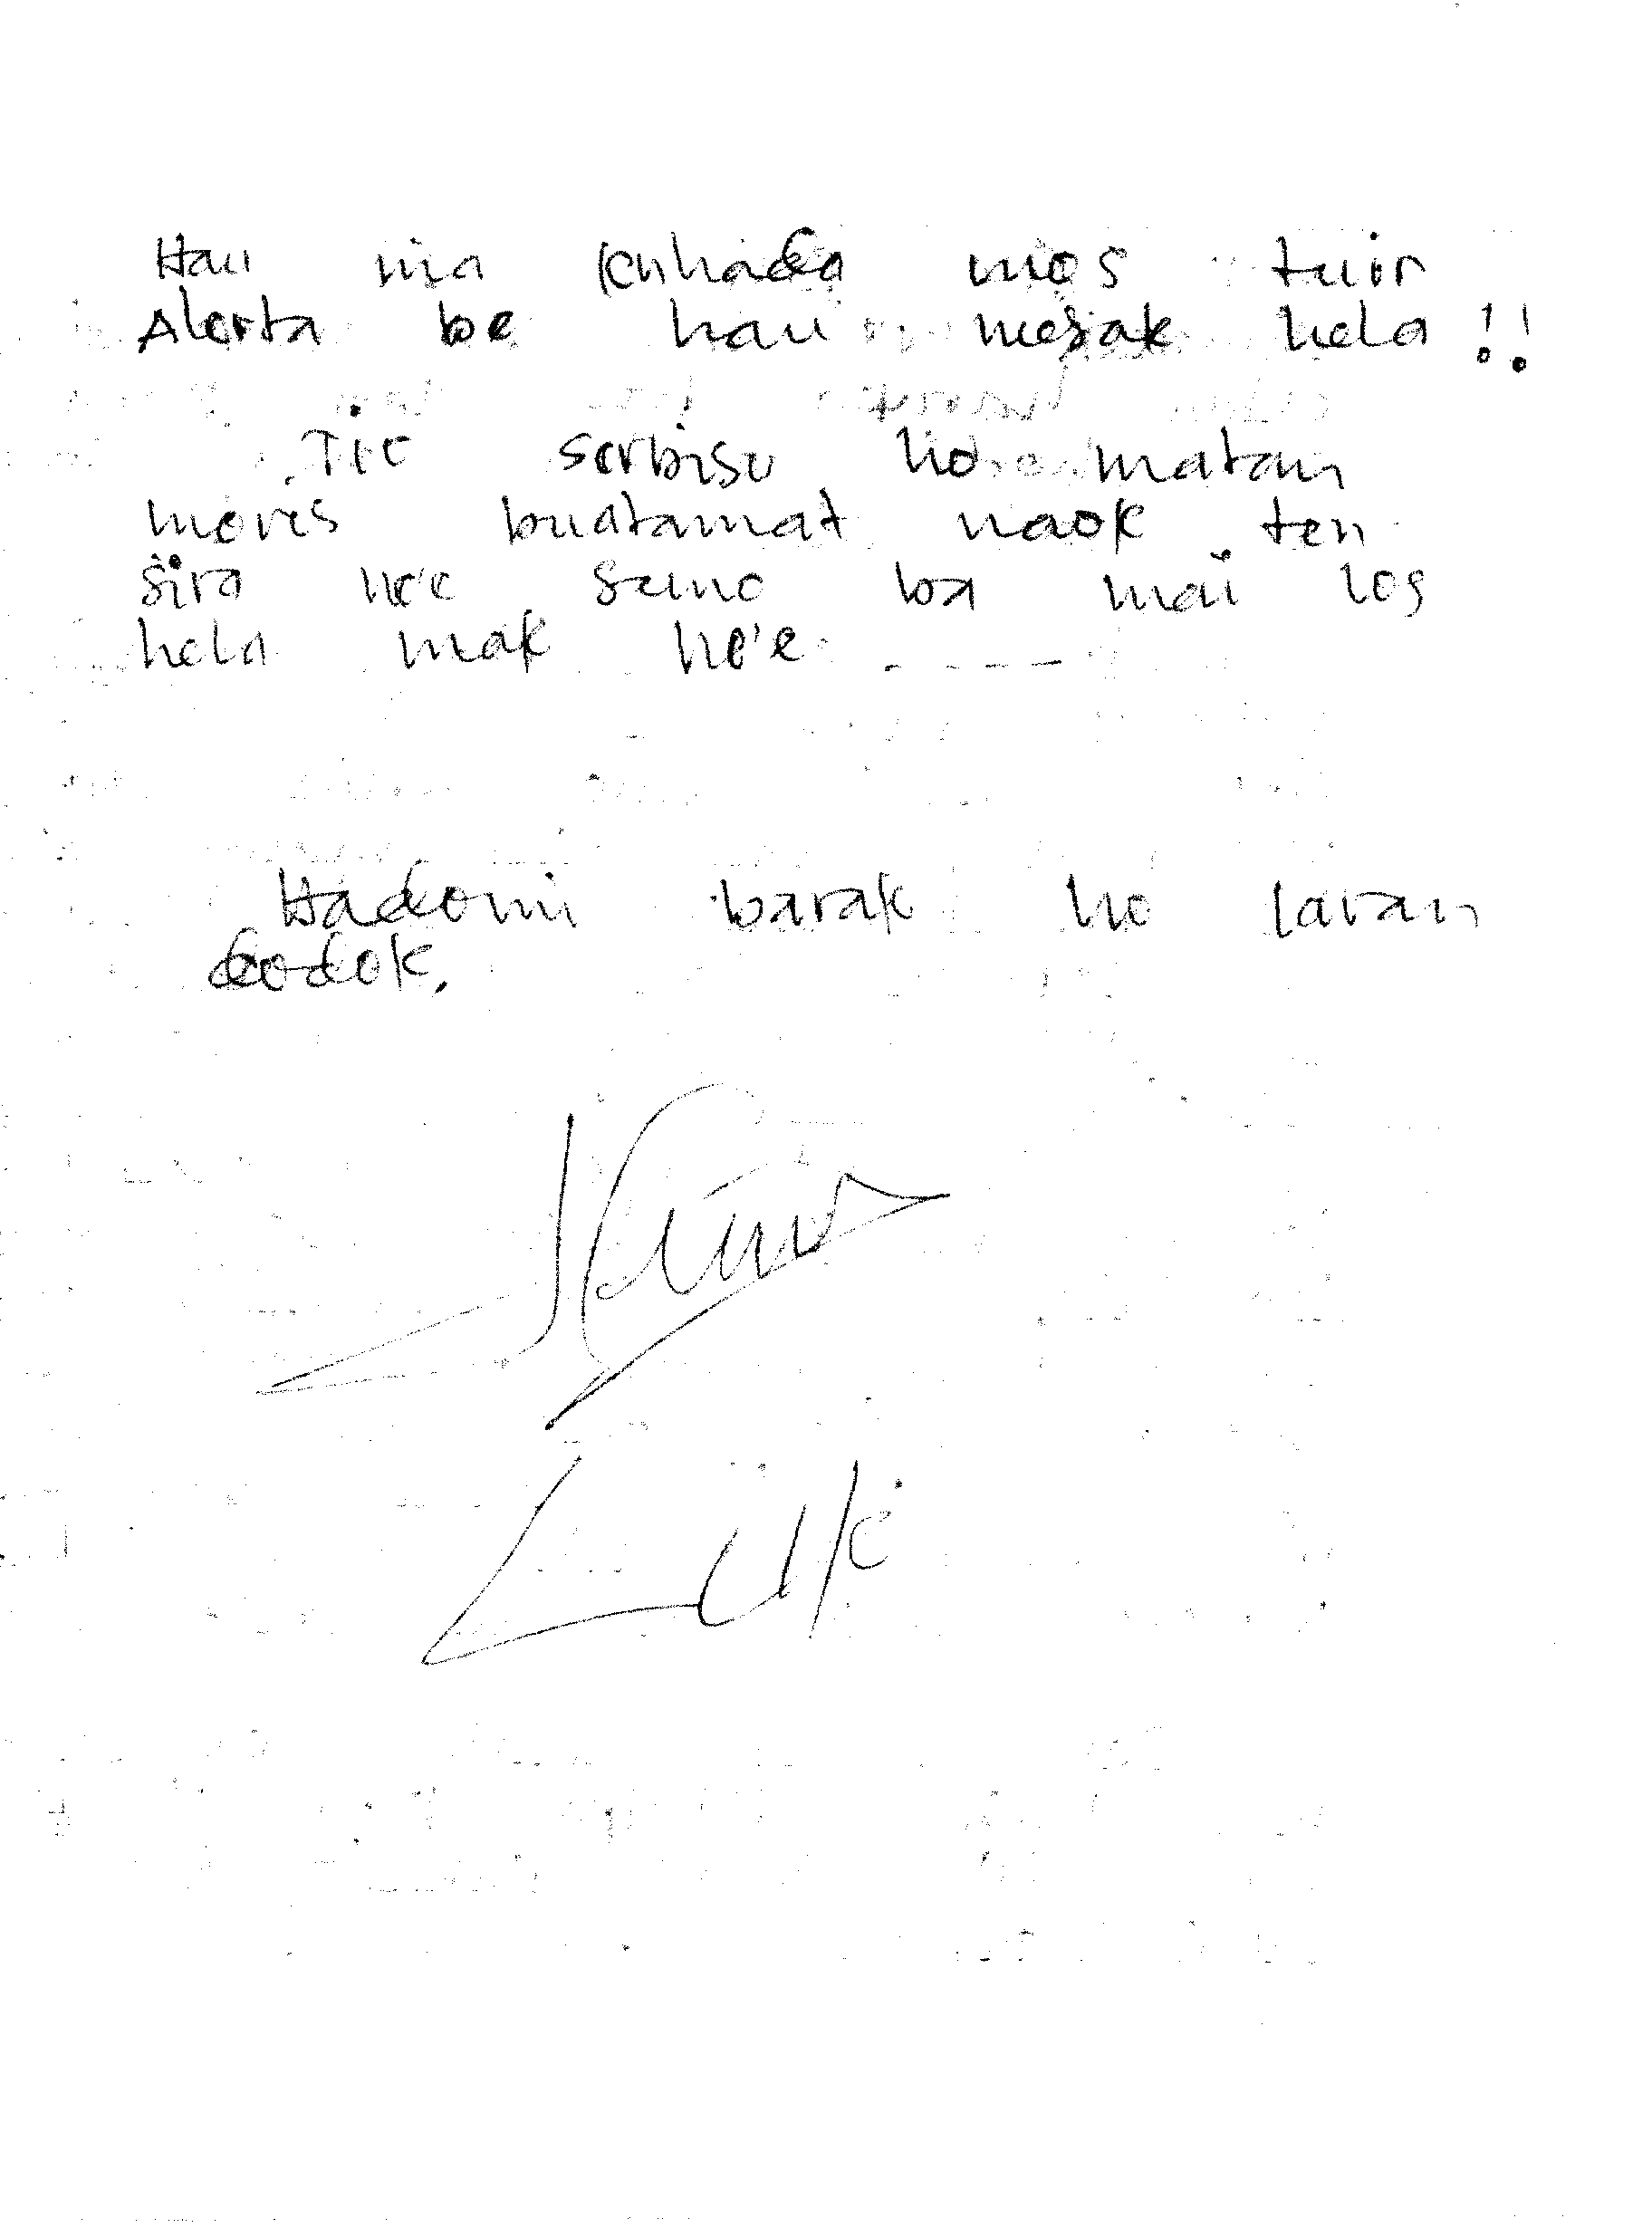 Hau nia kuhada mos tuir
Alerta be hau mesak hela !!
Tie serbisu ho matan
moris buatamat naok ten
sira ne'e semo ba mai los
hela mak ne'e - - - -
Hadomi barak ho laran
dodok.
Luli